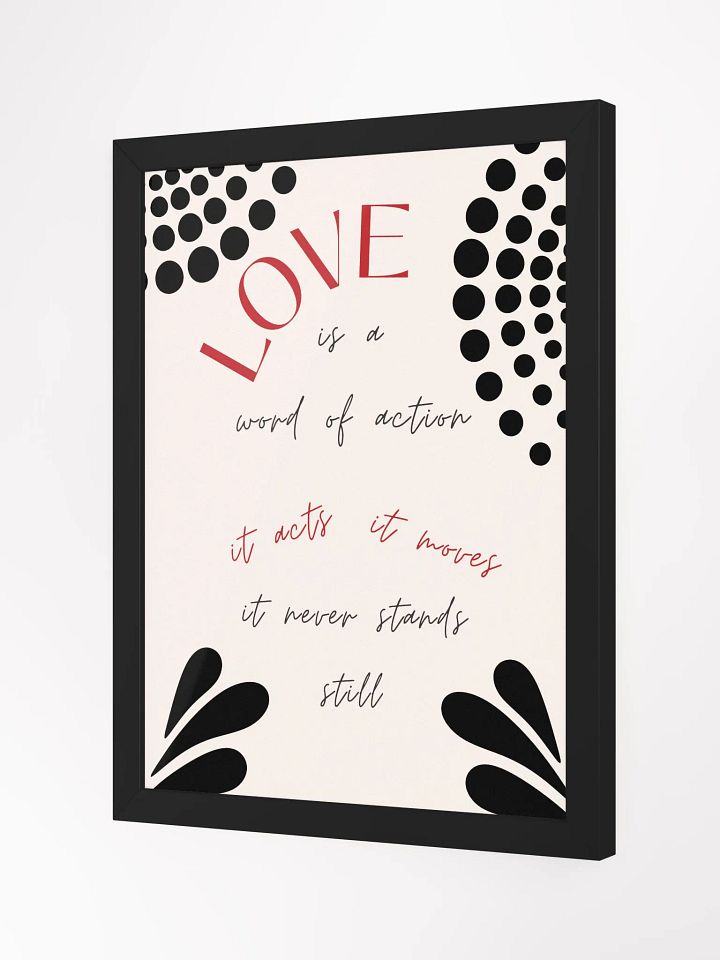 LOVE
is a
word of action
it acts it moves
it never stands
still